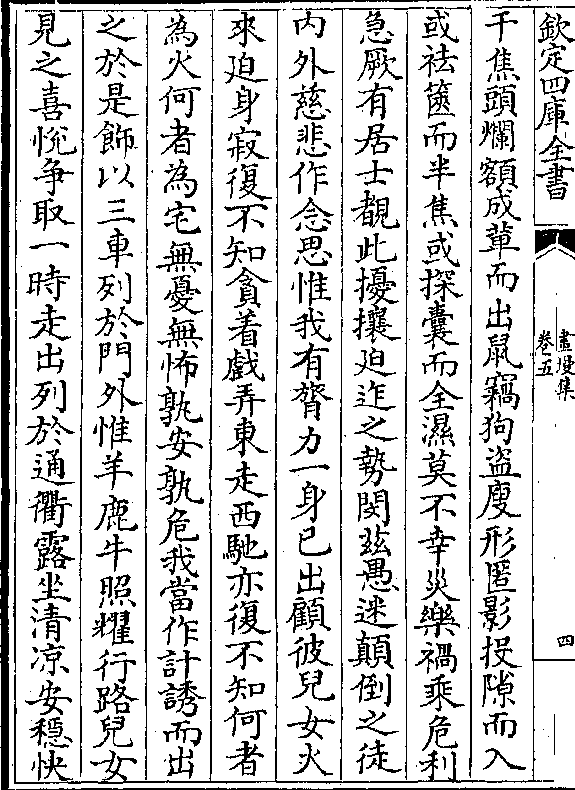 欽定四庫全書
畫墁集
卷五
四
干焦頭爛額成輩而出鼠竊狗盜廋形匿影投隙而入
或祛篋而半焦或探囊而全濕莫不幸災樂禍乘危利
急厥有居士覩此擾攘迫迮之勢閔兹愚迷顛倒之徒
内外慈悲作念思惟我有膂力一身已出顧彼兒女火
來迫身寂復不知貪着戲弄東走西馳亦復不知何者
為火何者為宅無憂無怖孰安孰危我當作計誘而出
之於是飾以三車列於門外惟羊鹿牛照耀行路兒女
見之喜恱争取一時走出列於通衢露坐清凉安穩快